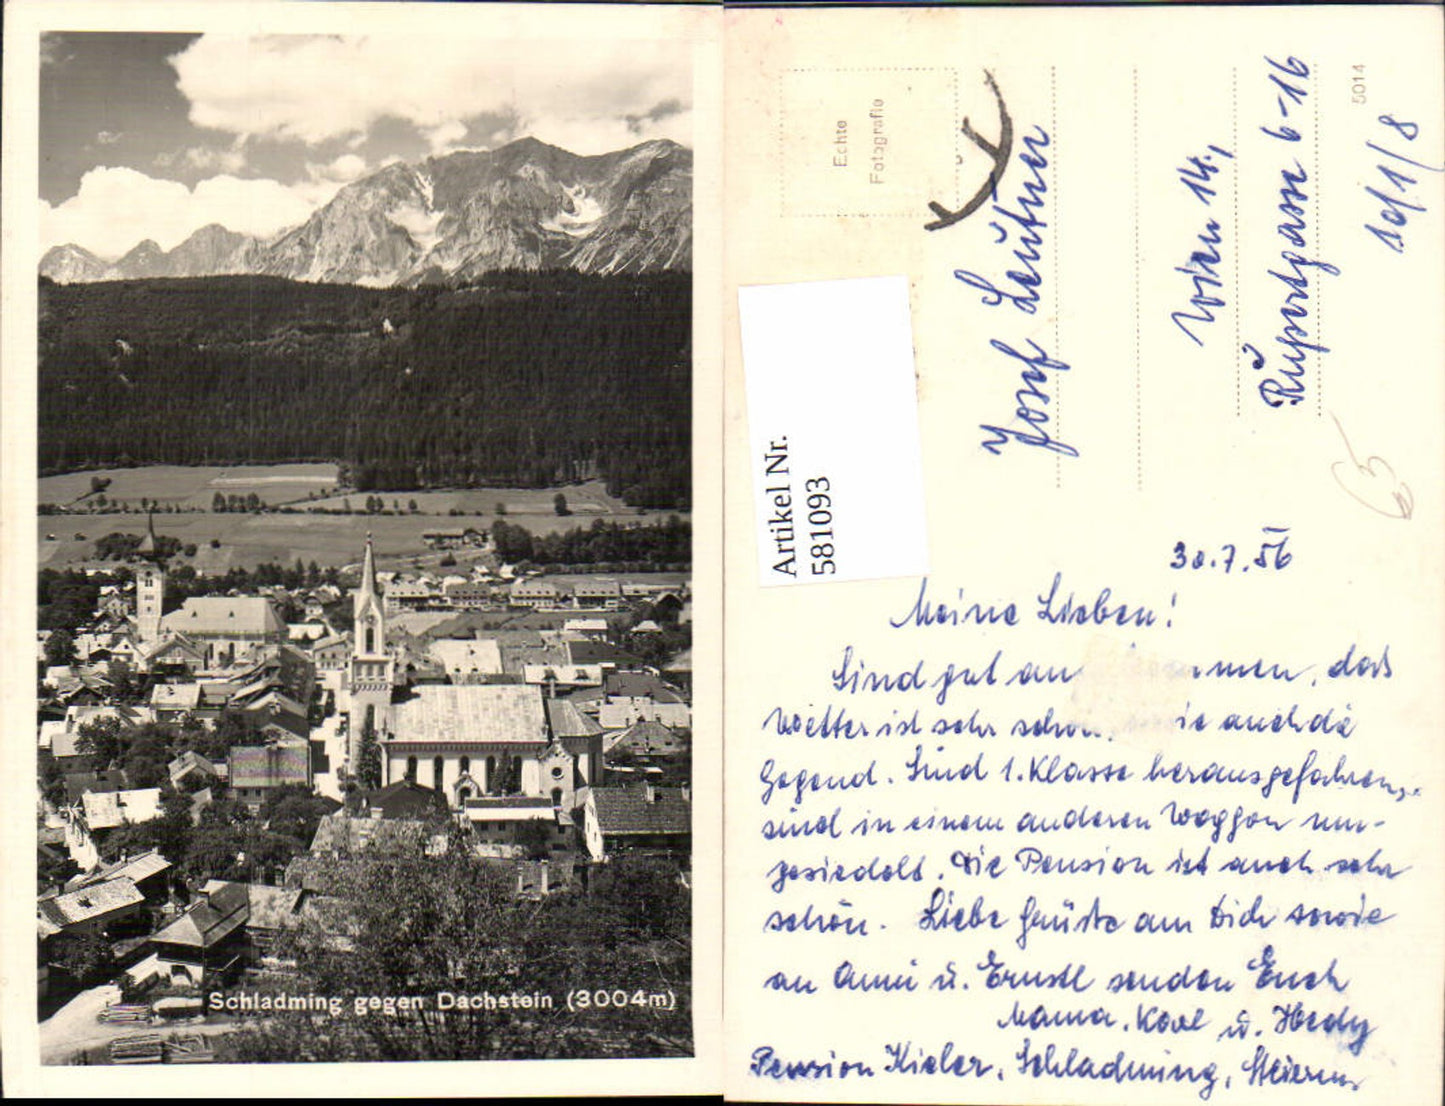 Schladming gegen Dachstein (3004m)
Echte
Fotografie
5014
Josef Leutner
Wien 14.,
Rupertgasse 6-16
10/1/8
65
Artikel Nr.
581093
30.7.56
Meine Lieben!
Sind gut an men, das
Wetter ist sehr schön, ie auch die
Gegend. Sind 1. Klasse herausgefahren,
sind in einem anderen Waggon um-
gesiedelt. Die Pension ist auch sehr
schön. Liebe Grüße an Dich sowie
an Anni u. Ernstl senden Euch
Mama, Karl u. Hedy
Pension Kieler, Schladming, Steierm.